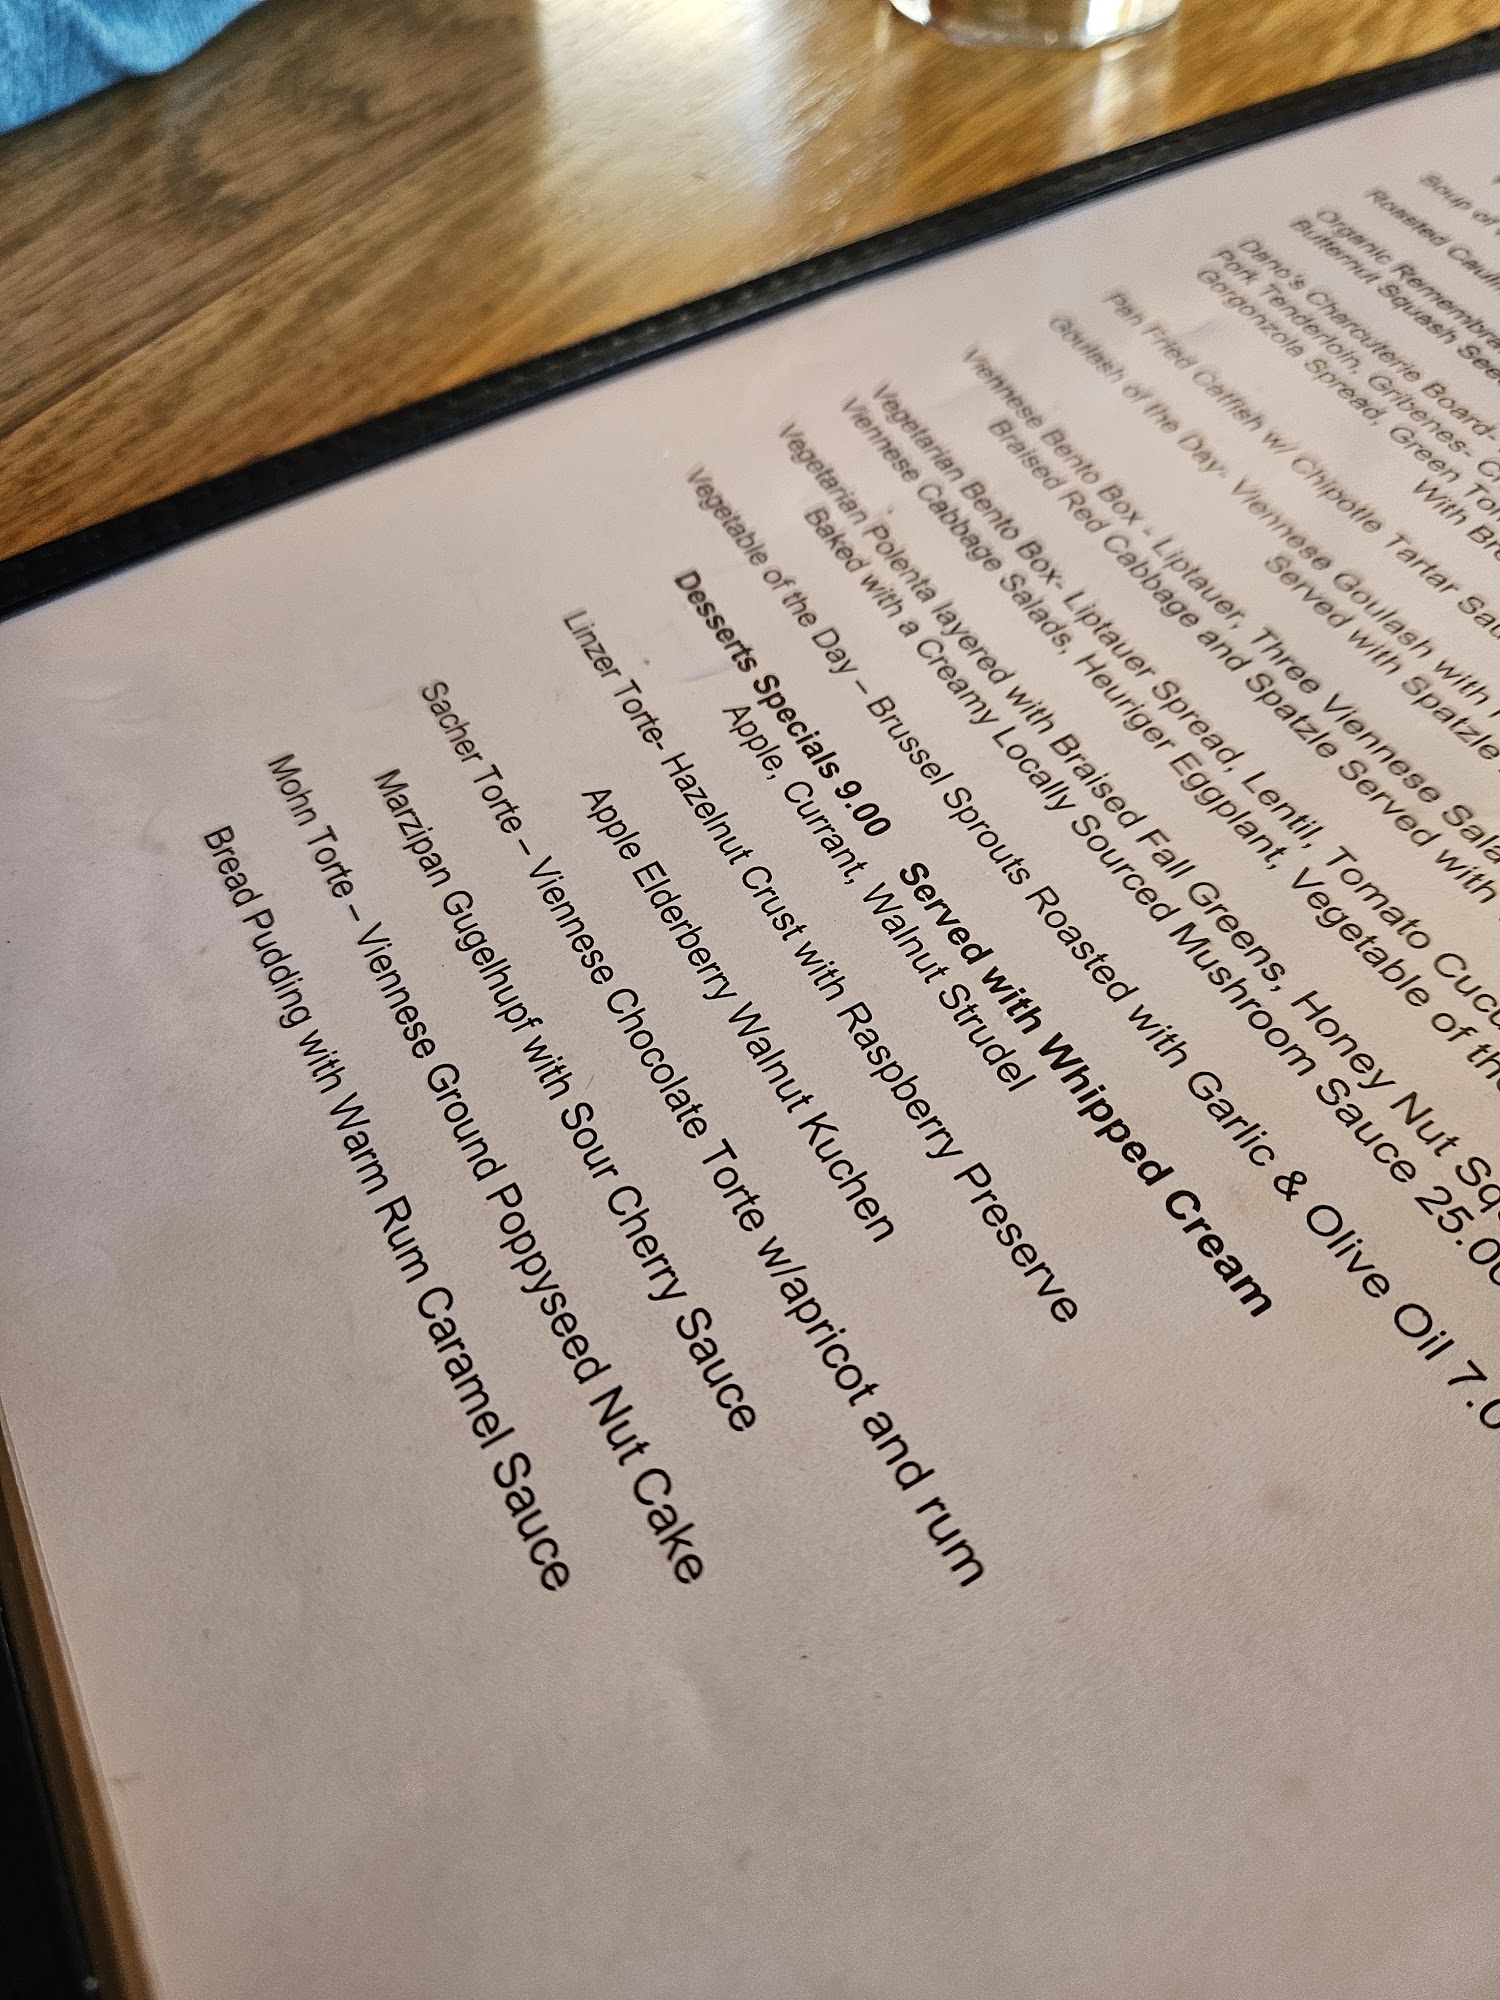 Soup of
Roasted Caulif
Organic Remembra
Butternut Squash See
Dano's Charcuterie Board-
Pork Tenderloin, Gribenes- Ch
Gorgonzola Spread, Green Tom
With Bre
Pan Fried Catfish w/ Chipotle Tartar Sau
Goulash of the Day- Viennese Goulash with
Served with Spatzle
Viennese Bento Box - Liptauer, Three Viennese Sala
Braised Red Cabbage and Spatzle Served with
Vegetarian Bento Box- Liptauer Spread, Lentil, Tomato Cucu
Viennese Cabbage Salads, Heuriger Eggplant, Vegetable of the
Vegetarian Polenta layered with Braised Fall Greens, Honey Nut Squ
Baked with a Creamy Locally Sourced Mushroom Sauce 25.00
Vegetable of the Day – Brussel Sprouts Roasted with Garlic & Olive Oil 7.0
Desserts Specials 9.00 Served with Whipped Cream
Apple, Currant, Walnut Strudel
Linzer Torte- Hazelnut Crust with Raspberry Preserve
Apple Elderberry Walnut Kuchen
Sacher Torte – Viennese Chocolate Torte w/apricot and rum
Marzipan Gugelhupf with Sour Cherry Sauce
Mohn Torte – Viennese Ground Poppyseed Nut Cake
Bread Pudding with Warm Rum Caramel Sauce